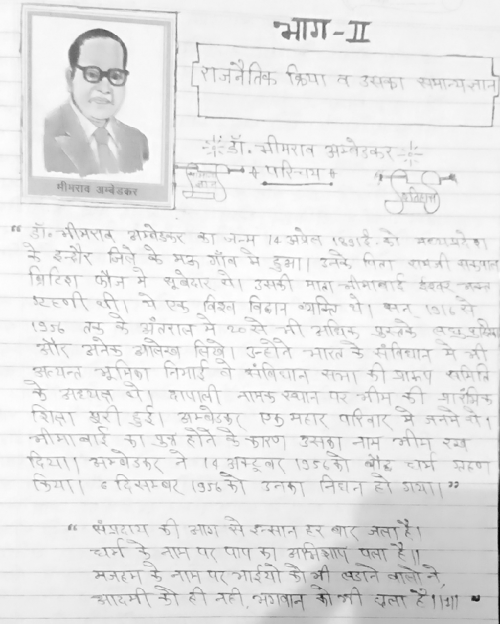 भाग-II
राजनैतिक क्रिया व उसका सामान्य ज्ञान
डॉ. भीमराव अम्बेडकर
परिचय
भीमराव अम्बेडकर
"डॉ. भीमराव अम्बेडकर का जन्म 14 अप्रैल 1891 ई. को मध्यप्रदेश
के इन्दौर जिले के मऊ गाँव में हुआ। उनके पिता रामजी सकपाल
ब्रिटिश फौज में सूबेदार थे। उसकी माता भीमाबाई ईश्वर भक्त
गृहणी थी। वे एक विश्व विद्वान व्यक्ति थे। सन् 1916 से
1956 तक के अंतराल में 20 से भी अधिक पुस्तकें
और अनेक आलेख लिखे। उन्होंने भारत के संविधान में भी
अत्यन्त भूमिका निभाई वे संविधान सभा की प्रारूप समिति
के अध्यक्ष थे। दापोली नामक स्थान पर भीम की प्रारंभिक
शिक्षा पूरी हुई। अम्बेडकर एक महार परिवार में जनमे थे।
भीमाबाई का पुत्र होने के कारण उसका नाम भीम रख
दिया। अम्बेडकर ने 14 अक्टूबर 1956 को बौद्ध धर्म ग्रहण
किया। 6 दिसम्बर 1956 को उनका निधन हो गया।"
"संप्रदाय की आग से इन्सान हर बार जला है।
धर्म के नाम पर पाप का अभिशाप पला है॥
मजहब के नाम पर भाईयों को भी लडाने वालो ने,
आदमी को ही नही, भगवान को भी छला है॥1॥"